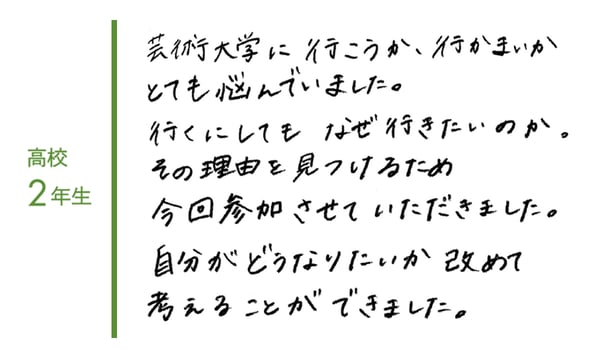 高校
2年生
芸術大学に行こうか、行かまいか
とても悩んでいました。
行くにしても なぜ行きたいのか。
その理由を見つけるため
今回参加させていただきました。
自分がどうなりたいか 改めて
考えることができました。